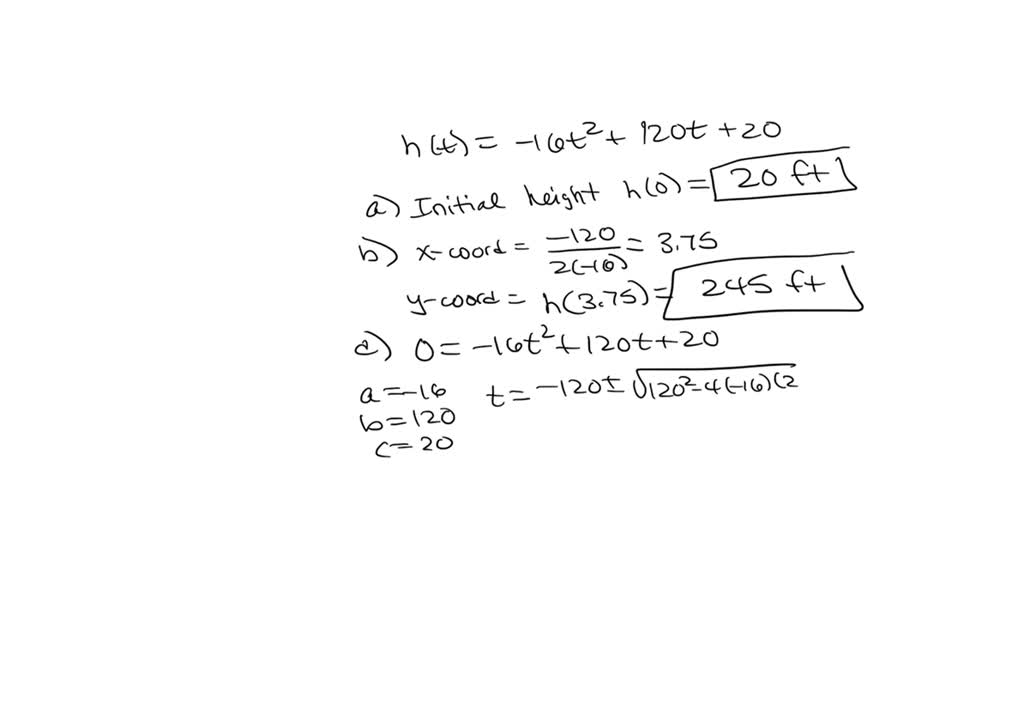 h(t) = -16t² + 120t + 20
a) Initial height h(0) = 20 ft
b) x-coord = -120/2(-16) = 3.75
y-coord = h(3.75) = 245 ft
c) 0 = -16t² + 120t + 20
a = -16 t = -120 ± √120² - 4(-16)(2
b = 120
c = 20